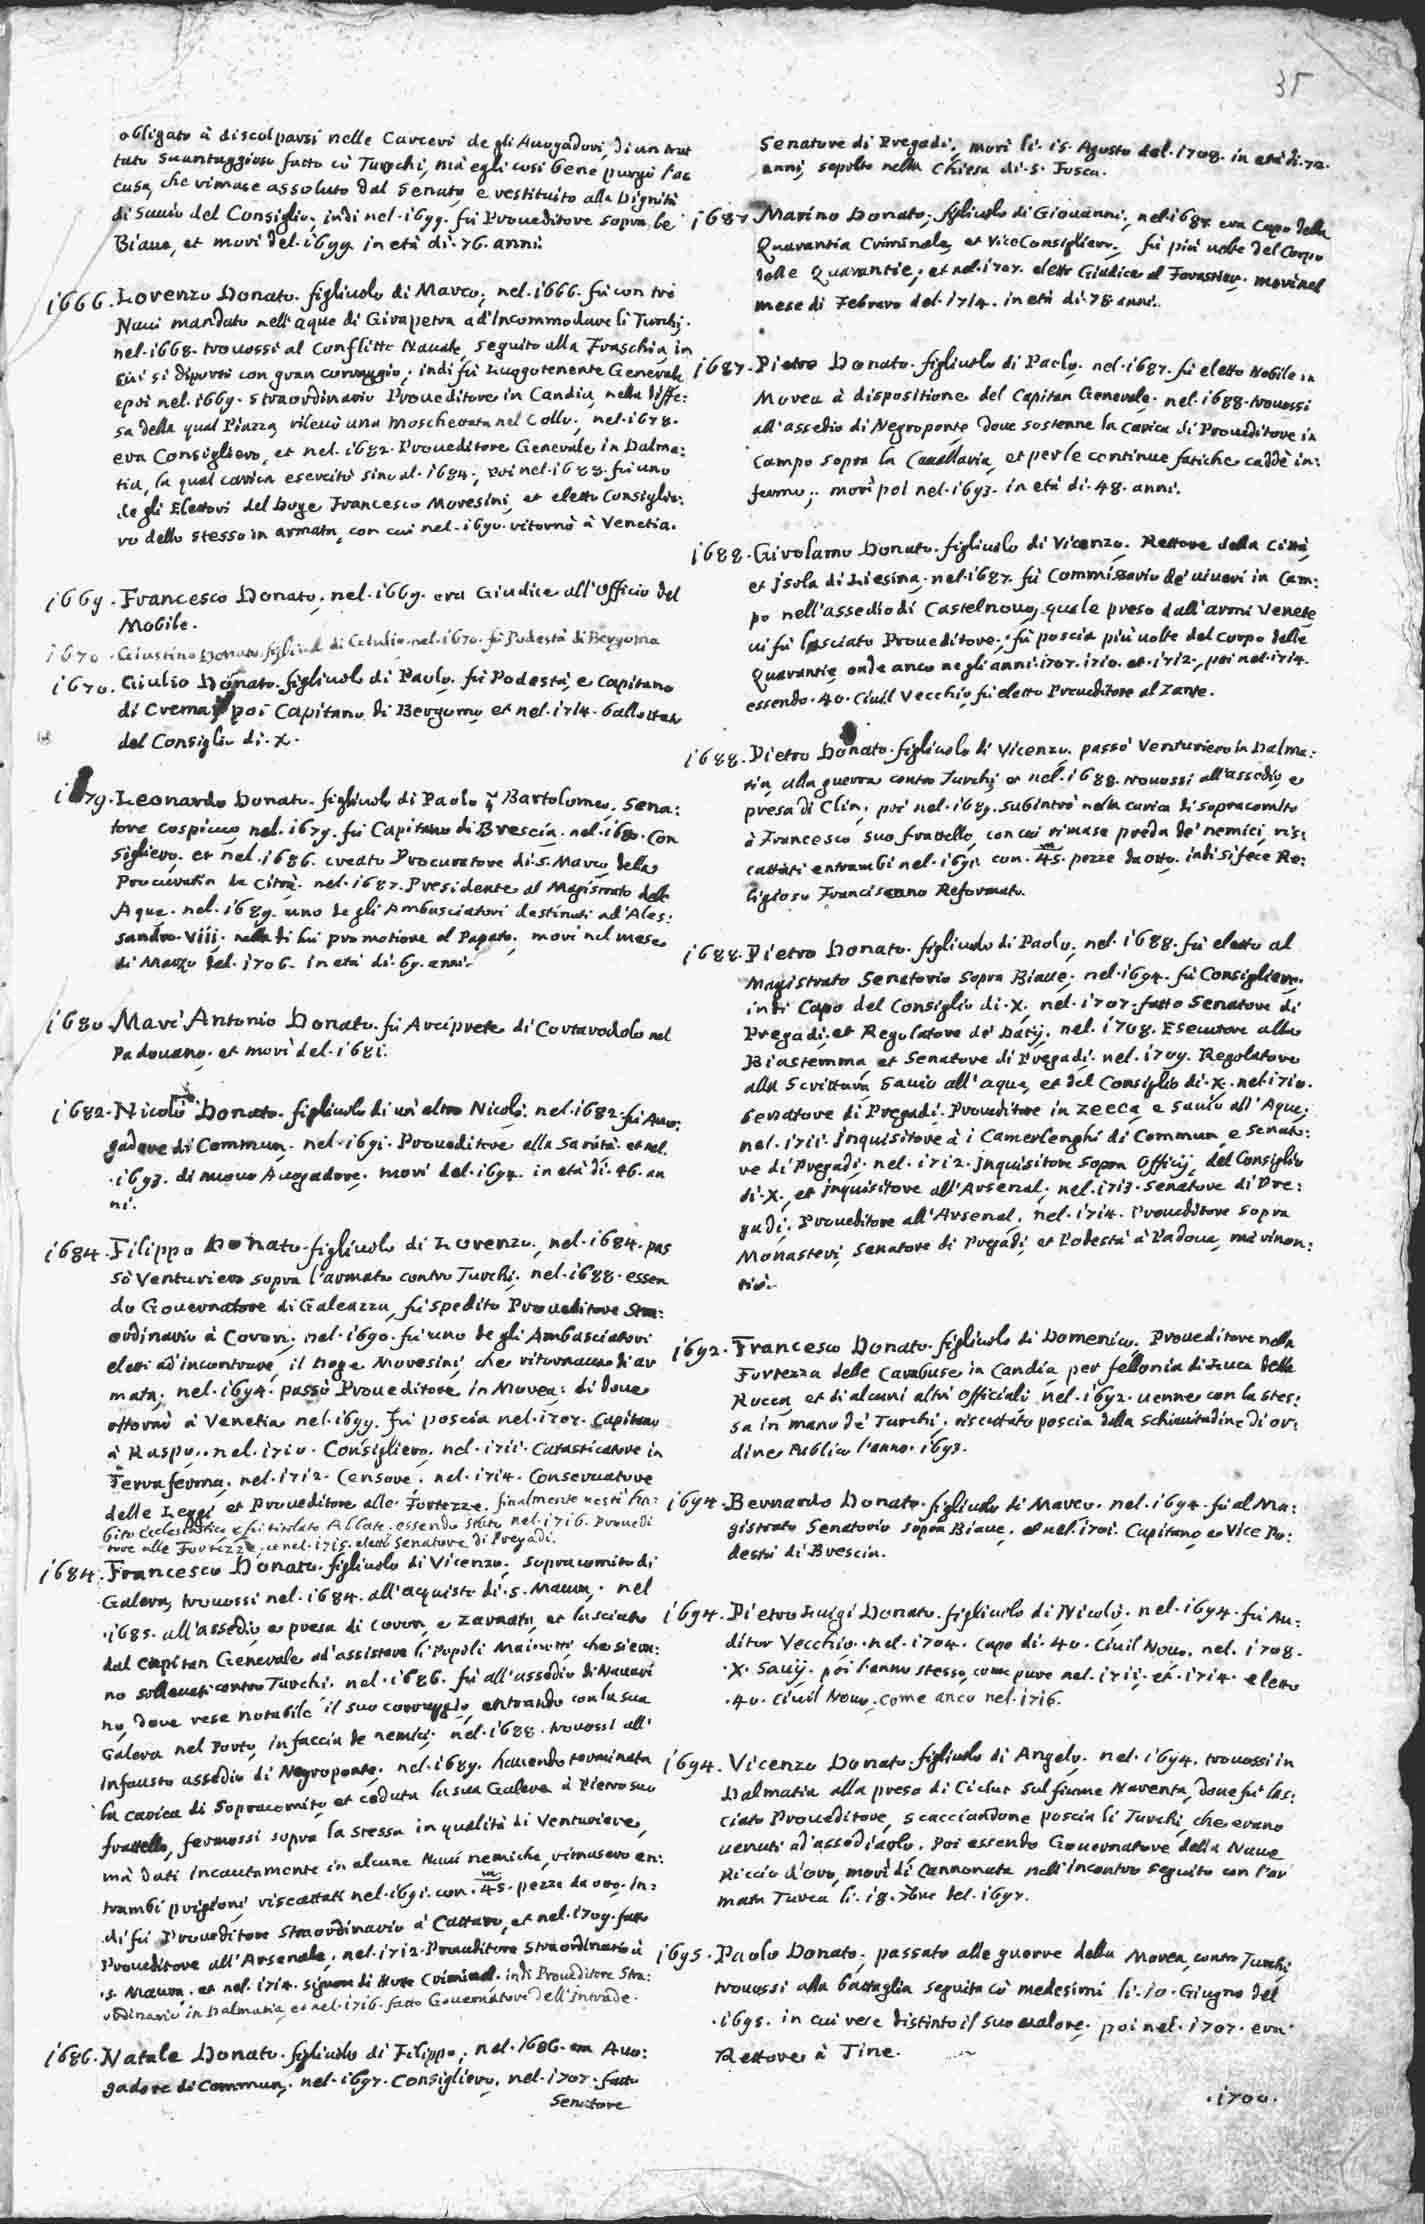 35
obligato à discolparsi nelle Carceri degli Auogadori, di un trat
tato suantaggioso fatto cò Turchi, mà egli cosi bene purgò l'ac
cusa, che rimase assoluto dal Senato, e restituito alla Dignità
di Sauio del Consiglio, indi nel .1699. fù Proueditore sopra le
Biaue, et morì del .1699. in età di .76. anni.
1666. Lorenzo Donato. figliuolo di Marco, nel .1666. fù con trè
Naui mandato nell'aque di Girapetra ad'Incommodare li Turchi.
nel .1668. trouossi al Conflitto Nauale, seguito alla Fraschia, in
cui si diportò con gran coraggio, indi fù Luogotenente Generale
e poi nel .1669. straordinario Proueditore in Candia, nella diffe:
sa della qual Piazza, rileuò una Moschettata nel Collo, nel .1678.
era Consigliero, et nel .1682. Proueditore Generale in Dalma:
tia, la qual carica esercitò sino al .1684., poi nel .1688. fù uno
degli Elettori del Doge Francesco Moresini, et eletto Consiglie:
ro dello stesso in armata, con cui nel .1690. ritornò à Venetia.
1669. Francesco Donato. nel .1669. era Giudice all'Officio del
Mobile.
1670. Giustino Donato figliuolo di nel .1670. fù Podestà di Bergomo
1670. Giulio Donato. figliuolo di Paolo. fù Podestà, e Capitano
di Crema, poi Capitano di Bergomo, et nel .1714. ballottato
del Consiglio di .X.
1679. Leonardo Donato. figliuolo di Paolo Bartolomeo, Sena:
tore cospicuo, nel .1679. fù Capitano di Brescia. nel .1680. Con
sigliero, et nel .1686. creato Procuratore di .S. Marco, della
Procuratia de Citrà. nel .1687. Presidente al Magistrato delle
Aque. nel .1689. uno degli Ambasciatori destinati ad'Ales:
sandro .VIII. nella di lui promotione al Papato, morì nel mese
di Marzo del .1706. in età di .69. anni.
1680. Marc'Antonio Donato. fù Arciprete di Cortarodolo nel
Padouano, et morì del .1681.
1682. Nicolò Donato. figliuolo di un'altro Nicolò. nel .1682. fù Auo:
gadore di Commun. nel .1691. Proueditore alla Sanità. et nel
.1693. di nuouo Auogadore. morì del .1694. in età di .46. an
ni.
1684. Filippo Donato. figliuolo di Lorenzo, nel .1684. pas
sò Venturiero sopra l'armata contro Turchi. nel .1688. essen
do Gouernatore di Galeazza, fù spedito Proueditore Stra:
ordinario à Coron, nel .1690. fù uno degli Ambasciatori
eletti ad'incontrare, il Doge Moresini, che ritornaua di ar
mata, nel .1694. passò Proueditore in Morea: di doue
ritornò à Venetia nel .1699. fù poscia nel .1707. Capitano
à Raspo, nel .1710. Consigliero, nel .1711. Catasticatore in
Terra ferma, nel .1712. Censore, nel .1714. Conseruatore
delle Leggi, et Proueditore alle Fortezze. finalmente uestì l'a:
bito Ecclesiastico, e fù titolato Abbate. essendo stato nel .1716. Prouedi
tore alle Fortezze, et nel .1715. eletto Senatore di Pregadi.
1684. Francesco Donato. figliuolo di Vicenzo, sopracomito di
Galera, trouossi nel .1684. all'acquisto di .S. Maura, nel
.1685. all'assedio, e presa di Coron, e Zarnata, et lasciato
dal Capitan Generale ad'assistere li Popoli Mainotti, che s'era:
no solleuati contro Turchi. nel .1686. fù all'assedio di Nauari
no, doue rese notabile il suo coraggio, entrando con la sua
Galera nel Porto, in faccia de nemici. nel .1688. trouossi all'
infausto assedio di Negroponte, nel .1689. hauendo terminata
la carica di Sopracomito, et ceduta la sua Galera à Pietro suo
frattello, fermossi sopra la stessa in qualità di Venturiere,
mà dati incautamente in alcune Naui nemiche, rimasero en:
trambi prigioni, riscattati nel .1691. con .45. pezze da otto. In:
di fù Proueditore Straordinario à Cattaro, et nel .1709. fatto
Proueditore all'Arsenale, nel .1712. Proueditore Straordinario à
.S. Maura. et nel .1714. signor di Notte Criminal. indi Proueditore Stra:
ordinario in Dalmatia, et nel .1716. fatto Gouernatore dell'Intrade.
1686. Natale Donato. figliuolo di Filippo, nel .1686. era Auo:
gadore di Commun. nel .1697. Consigliero. nel .1707. fatto
Senatore
Senatore di Pregadi, morì li .15. Agosto del .1708. in età di .72.
anni, sepolto nella Chiesa di .S. Fosca.
1687. Marino Donato, figliuolo di Giouanni, nel .1687. era Capo della
Quarantia Criminale, et ViceConsigliero. fù più uolte del Corpo
delle Quarantie, et nel .1707. eletto Giudice al Forastier. morì nel
mese di Febraro del .1714. in età di .78. anni.
1687. Pietro Donato. figliuolo di Paolo. nel .1687. fù eletto Nobile in
Morea à dispositione del Capitan Generale. nel .1688. trouossi
all'assedio di Negroponte, doue sostenne la carica di Proueditore in
Campo sopra la Cauallaria, et per le continue fatiche caddè in:
fermo, morì poi nel .1693. in età di .48. anni.
1688. Girolamo Donato. figliuolo di Vicenzo. Rettore della Città,
et Isola di Liesina. nel .1687. fù Commissario de' uiueri in Cam:
po nell'assedio di Castelnouo, quale preso dall'armi Venete
ui fù lasciato Proueditore, fù poscia più uolte del Corpo delle
Quarantie, onde anco negli anni .1707. 1710. et .1712., poi nel .1714.
essendo .40. Ciuil Vecchio, fù eletto Proueditore al Zante.
1688. Pietro Donato. figliuolo di Vicenzo. passò Venturiero in Dalma:
tia, alla guerra contro Turchi, et nel .1688. trouossi all'assedio, e
presa di Clin, poi nel .1689. subintrò nella carica di sopracomito
à Francesco suo frattello, con cui rimase preda de' nemici, ris:
cattati entrambi nel .1691. con .45. pezze da otto. indi si fece Re:
ligioso Franciscano Reformato.
1688. Pietro Donato. figliuolo di Paolo, nel .1688. fù eletto al
Magistrato Senatorio sopra Biaue, nel .1694. fù Consigliero,
indi Capo del Consiglio di .X. nel .1707. fatto Senatore di
Pregadi, et Regolatore de' Datij. nel .1708. Esecutore alla
Biastemma, et Senatore di Pregadi. nel .1709. Regolatore
alla Scrittura, Sauio all'aque, et del Consiglio di .X. nel .1710.
Senatore di Pregadi. Proueditore in Zecca, e Sauio all'Aque;
nel .1711. Inquisitore à i Camerlenghi di Commun, e Senato:
re di Pregadi. nel .1712. Inquisitore sopra Officij, del Consiglio
di .X., et Inquisitore all'Arsenal. nel .1713. Senatore di Pre:
gadi, Proueditore all'Arsenal, nel .1714. Proueditore sopra
Monasteri, Senatore di Pregadi, et Podestà à Padoua, mà rinon:
tiò.
1692. Francesco Donato. figliuolo di Domenico. Proueditore nella
Fortezza delle Carabuse in Candia, per fellonia di Luca della
Rocca, et di alcuni altri Officiali nel .1692. uenne con la stes:
sa in mano de' Turchi, riscattato poscia dalla Schiauitudine di or:
dine Publico l'anno .1693.
1694. Bernardo Donato. figliuolo di Marco. nel .1694. fù al Ma:
gistrato Senatorio sopra Biaue, et nel .1701. Capitano, e Vice Po:
destà di Brescia.
1694. Pietro Luigi Donato. figliuolo di Nicolò. nel .1694. fù Au:
ditor Vecchio. nel .1704. Capo di .40. Ciuil Nouo. nel .1708.
.X. Sauij. poi l'anno stesso, come pure nel .1711. et .1714. eletto
.40. Ciuil Nouo, come anco nel .1716.
1694. Vicenzo Donato. figliuolo di Angelo. nel .1694. trouossi in
Dalmatia alla presa di Ciclut sul fiume Narenta, doue fù las:
ciato Proueditore, scacciandone poscia li Turchi, che erano
uenuti ad'assediarlo. Poi essendo Gouernatore della Naue
Riccio d'oro, morì di Cannonata nell'incontro seguito con l'ar
mata Turca li .18. 7bre del .1697.
1695. Paolo Donato, passato alle guerre della Morea, contro Turchi,
trouossi alla battaglia seguita cò medesimi li .10. Giugno del
.1695. in cui rese distinto il suo ualore, poi nel .1707. era
Rettore à Tine.
.1700.